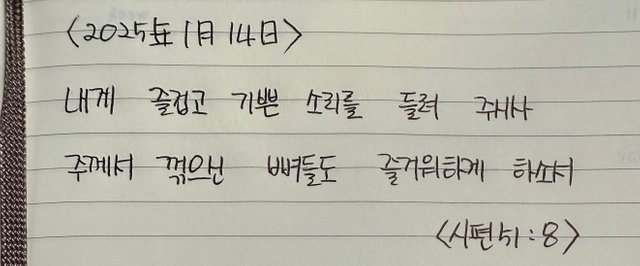 <2025年 1月 14日>
내게 즐겁고 기쁜 소리를 들려 주시사
주께서 꺾으신 뼈들도 즐거워하게 하소서
<시편 51:8>